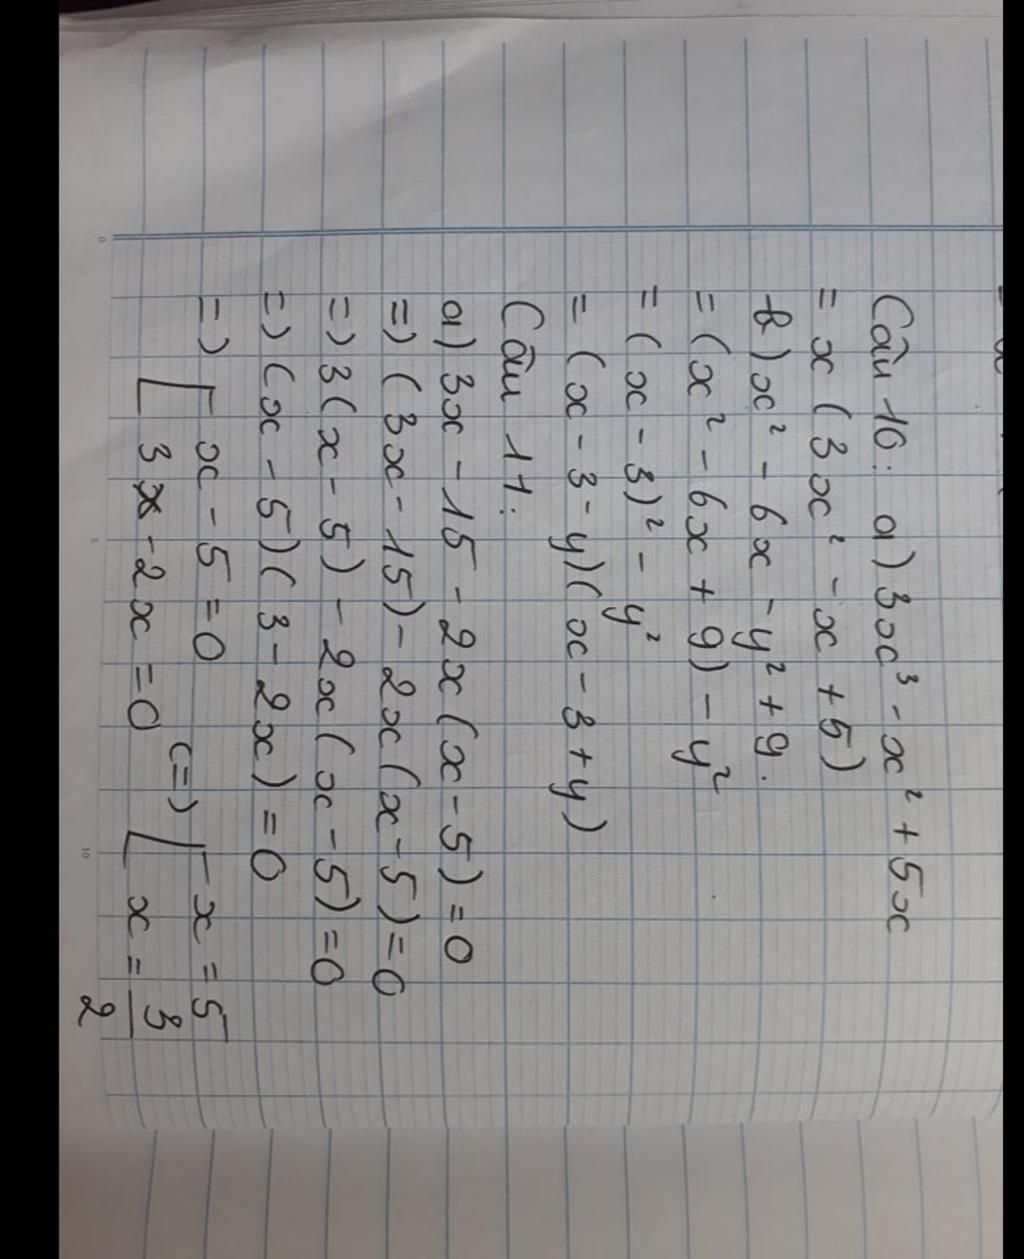 Câu 10: a) 3x³ - x² + 5x
= x (3x² - x + 5)
b) x² - 6x - y² + 9.
= (x² - 6x + 9) - y²
= (x - 3)² - y²
= (x - 3 - y)(x - 3 + y)
Câu 11:
a) 3x - 15 - 2x (x - 5) = 0
=) (3x - 15) - 2x (x - 5) = 0
=) 3 (x - 5) - 2x (x - 5) = 0
=) (x - 5) (3 - 2x) = 0
=) [ x - 5 = 0 (=) [ x = 5
3 - 2x = 0 x = 3/2
0 5 10